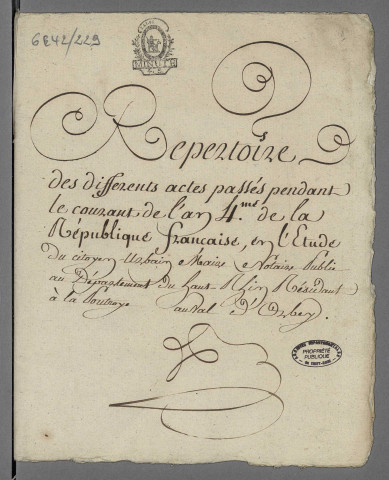 6E42/229
MINUTE
Repertoire
des differents actes passés pendant
le courant de l'an 4.me de la
République française, en l'Etude
du citoyen Urbain Maire Notaire Public
au Département du haut-Rhin Résidant
à la Poutroye au Val d'Orbey.
ARCHIVES DEPARTEMENTALES
PROPRIÉTÉ
PUBLIQUE
DU HAUT-RHIN